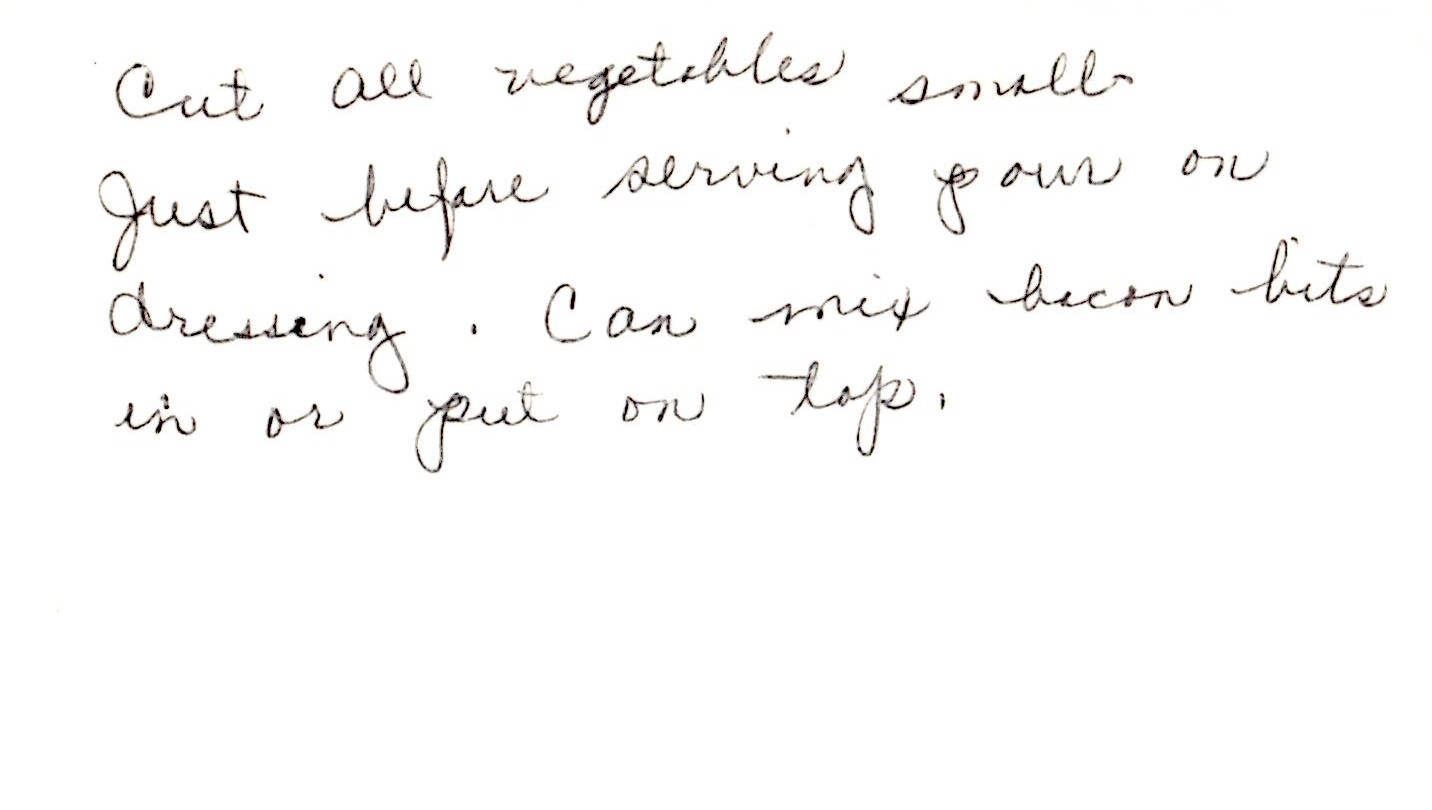 Cut all vegetables small
Just before serving pour on
dressing. Can mix bacon bits
in or put on top.